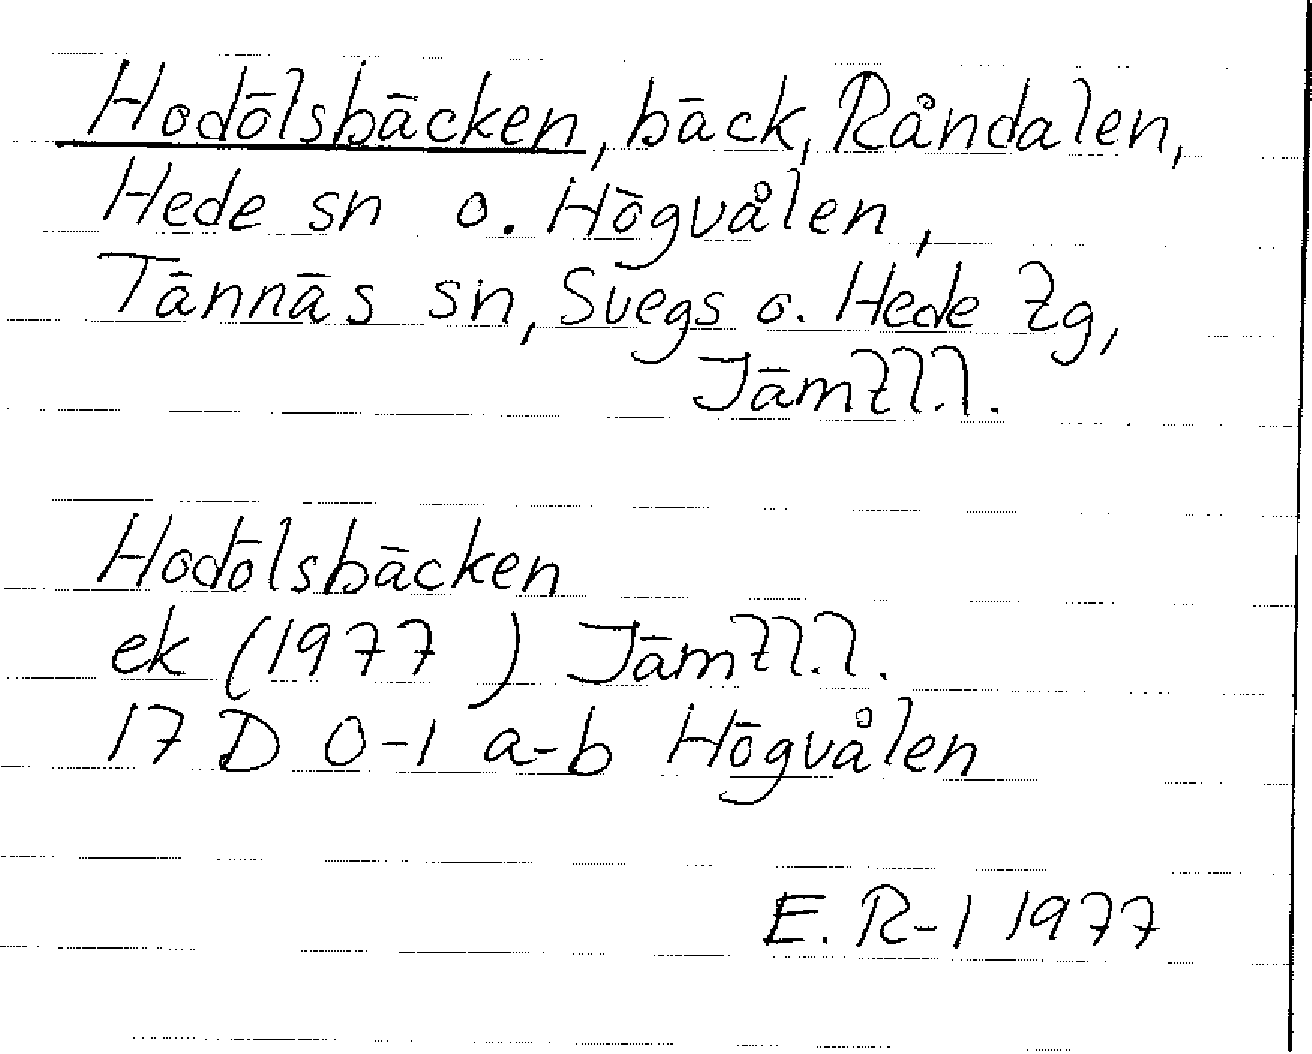 Hodölsbäcken, bäck, Råndalen,
Hede sn o. Högvålen,
Tännäs sn, Svegs o. Hede tg,
Jämtl.l.
Hodölsbäcken
ek (1977 ) Jämtl.l.
17 D 0-1 a-b Högvålen
E. R-l 1977